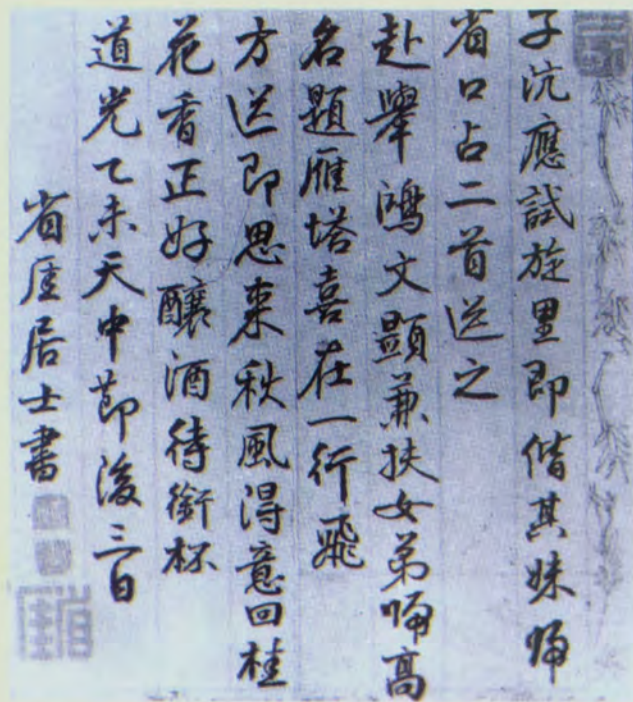 子沆應試旋里即偕其妹歸
省口占二首送之
赴舉鴻文顯兼扶女弟歸高
名題雁塔喜在一行飛
方送即思來秋風得意回桂
花香正好釀酒待銜杯
道光乙未天中節後三日
省厓居士書